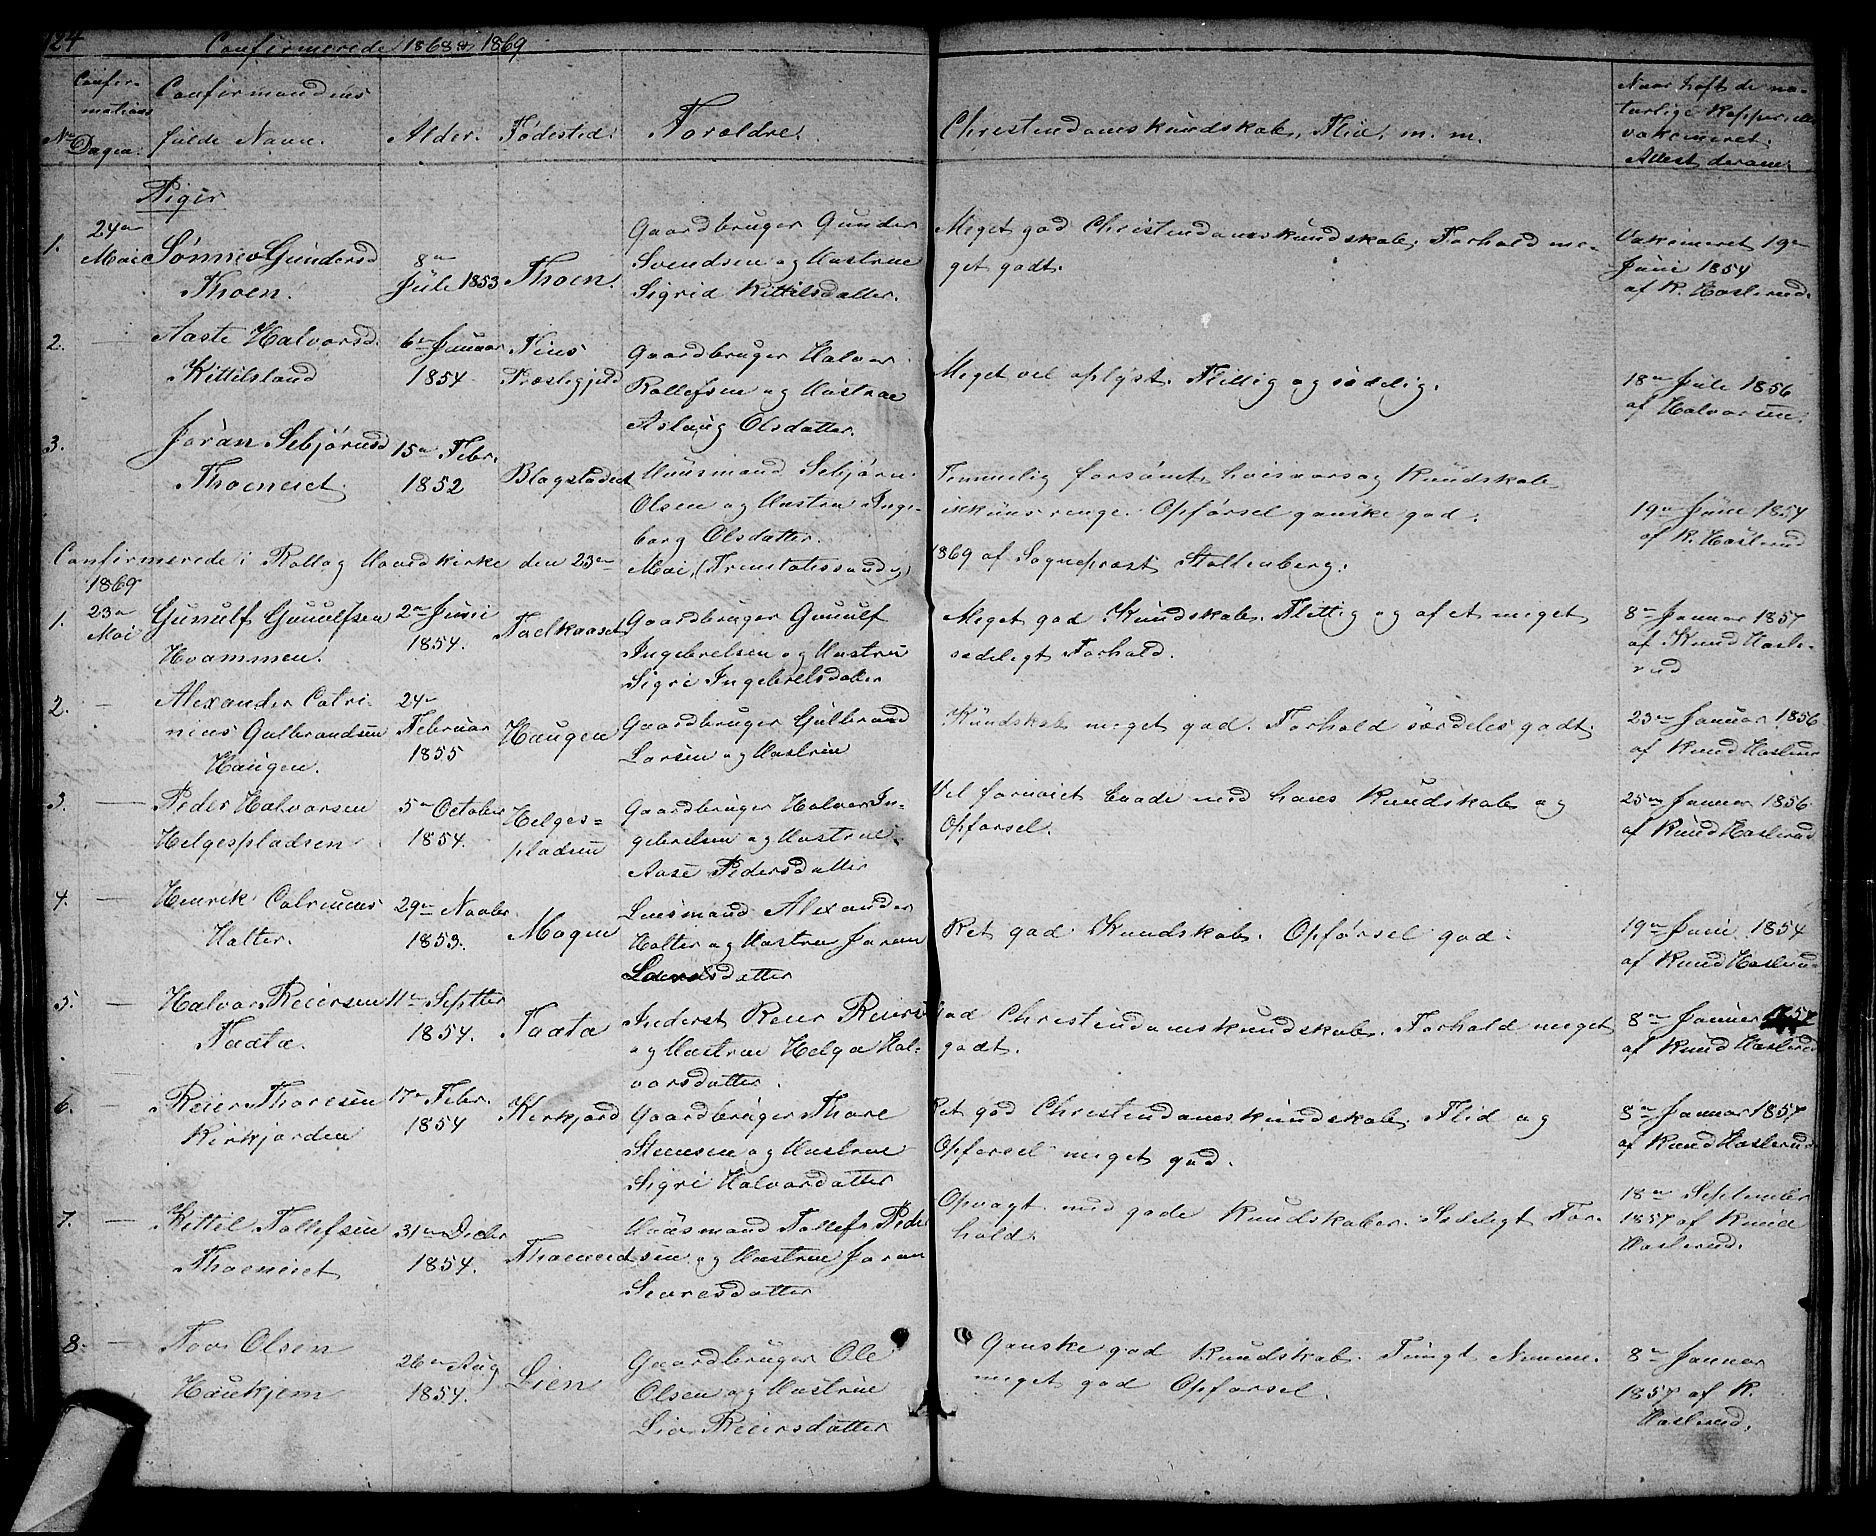 124 Confirmerede 1868 & 1869
No
Confir-
mations
Dagen.
Confirmandens
fulde Navn.
Alder.
Fødested.
Forældre.
Christendomskundskab, Flid, m. m.
Naar haft de na-
turlige Kopper eller
vakcineret.
Attest derom.
Piger
1.
24de
Mai
Sønniev Gundersd
Thoen.
8de
Juli 1853
Thoen.
Gaardbruger Gunder
Svendsen og Hustrue
Sigrid Kittilsdatter.
Meget god Christendomskundskab. Forhold me-
get godt.
Vakcineret 19de
Juni 1854
af K. Haslerud.
2.
Aaste Halvorsd.
Kittilsland
6te Januar
1854.
Fins
Præstegjeld
Gaardbruger Halvor
Rollefsen og Hustrue
Aslaug Olsdatter.
Meget vel oplyst. Flittig og sædelig.
18de Juli 1856
af Halvorsen.
3.
Joran Sebjørnsd
Thoeneiet.
15de Febr.
1852
Blogstadeiet
Huusmand Sebjørn
Olsen og Hustru Inge-
borg Olsdatter.
Temmelig forsømt, hvisaarsag Kundskab
ikkuns ringe. Opførsel ganske god.
19de Juni 1854
af K. Haslerud
Confirmerede i Rollag Hovedkirke den 23de Mai, (Trinitatissøndag) 1869 af Sogneprest Stoltenberg.
1869
1.
23de
Mai
Gunulf Gunulfsen
Hvammen.
2den Juni
1854.
Toelkaaset
Gaardbruger Gunulf
Ingebretsen og Hustru
Sigri Ingebretsdatter
Meget god Kundskab. Flittig og af et meget
sædeligt Forhold.
8de Januar 1857
af Knud Hasle-
rud
2.
Alexander Catri-
nius Gulbrandsen
Haugen.
24de
Februar
1855
Haugen
Gaardbruger Gulbrand
Larsen og Hustrue
Kundskab meget god. Forhold særdeles godt.
23de Januar 1856
af Knud Haslerud
3.
Peder Halvorsen
Helgespladsen
5te October
1854.
Helges-
pladsen
Gaardbruger Halvor In-
gebretsen og Hustrue
Aase Pedersdatter
Vel fornøiet baade med hans Kundskab og
Opførsel.
25de Januar 1856
af Knud Haslerud
4.
Henrik Catrinius
Holter.
29de Novbr.
1853.
Mogen
Huusmand Alexander
Holter og Hustru Joran
Larsdatter
Ret god Kundskab. Opførsel god.
19de Juni 1854
af Knud Haslerud
5.
Halvor Reiersen
Traata.
11te Septbr
1854.
Traata
Inderst Reier Reiers
og Hustrue Helga Hal-
vorsdatter.
God Christendomskundskab. Forhold meget
godt.
8de Januar 1857
af Knud Haslerud
6.
Reier Thoresen
Kirkjorden
17de Febr.
1854
Kirkjord
Gaardbruger Thore
Steensen og Hustrue
Sigri Halvordatter
Ret god Christendomskundskab. Flid og
Opførsel meget god.
8de Januar 1857
af Knud Haslerud
7.
Kittel Tollefsen
Thoeneiet
31te Decbr
1854.
Thoeneiet
Huusmand Tollef Peder
sen og Hustrue Joran
Seuresdatter
Opvagt med gode Kundskaber. Sædeligt For-
hold.
18de September
1857 af Knud
Haslerud.
8.
Tov Olsen
Haukjem
26de Aug
1854.
Lien
Gaardbruger Ole
Olsen og Hustrue
Liv Reiersdatter
Ganske god Kundskab. Tungt Nemme.
meget god Opførsel.
8de Januar
1857 af K.
Haslerud.